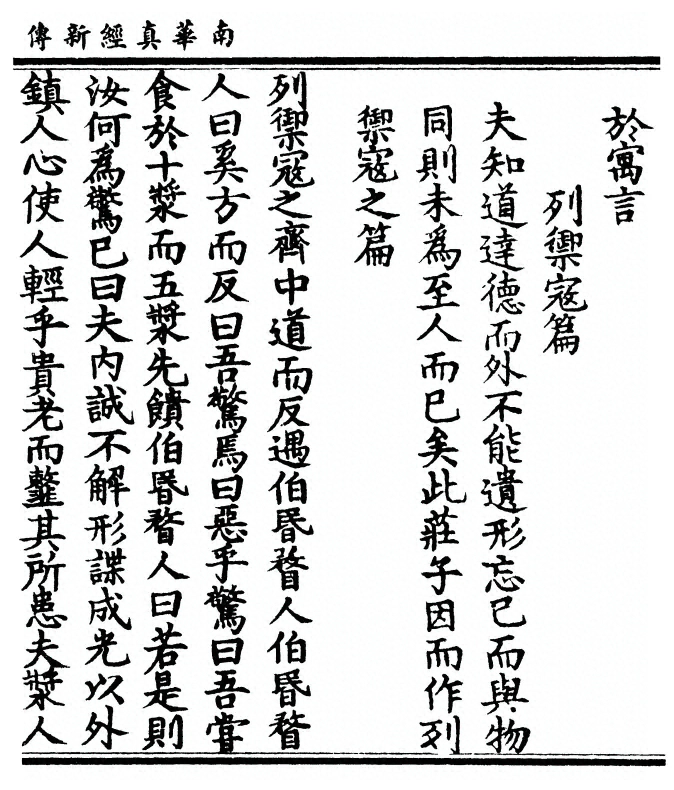 南華真經新傳
於寓言
列禦寇篇
夫知道達德而外不能遺形忘已而與物
同則未爲至人而已矣此莊子因而作列
禦寇之篇
列禦寇之齊中道而反遇伯昬瞀人伯昬瞀
人曰奚方而反曰吾驚焉曰惡乎驚曰吾甞
食於十漿而五漿先饋伯昬瞀人曰若是則
汝何爲驚已曰夫内誠不解形諜成光以外
鎮人心使人輕乎貴老而𩐎其所患夫漿人